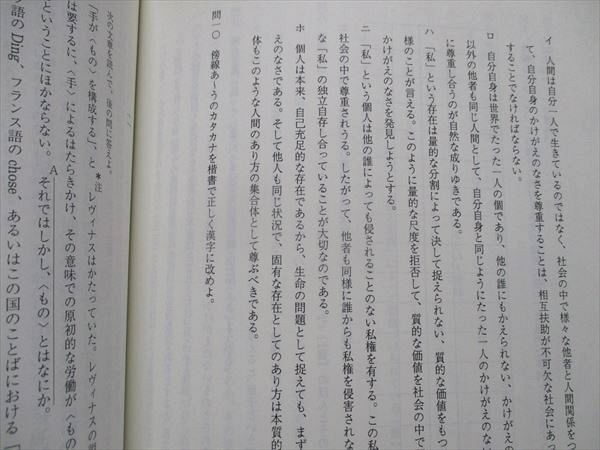 イ　人間は自分一人で生きているのではなく、社会の中で様々な他者と人間関係をつ
て、自分自身のかけがえのなさを尊重することは、相互扶助が不可欠な社会にあっ
することでなければならない。
ロ　自分自身は世界でたった一人の個であり、他の誰にもかえられない、かけがえの
以外の他者も同じ人間として、自分自身と同じようにたった一人のかけがえのない
に尊重し合うのが自然な成りゆきである。
ハ　「私」という存在は量的な分割によって決して捉えられない、質的な価値をもつ
様のことが言える。このように量的な尺度を拒否して、質的な価値を社会の中で
かけがえのなさを発見しようとする。
ニ　「私」という個人は他の誰によっても侵されることのない私権を有する。この私
社会の中で尊重されうる。したがって、他者も同様に誰からも私権を侵害されな
な「私」の独立自存し合っていることが大切なのである。
ホ　個人は本来、自己充足的な存在であるから、生命の問題として捉えても、まず
えのなさである。そして他人も同じ状況で、固有な存在としてのあり方は本質的
体もこのような人間のあり方の集合体として尊ぶべきである。
問一〇　傍線あ～うのカタカナを楷書で正しく漢字に改めよ。
次の文章を読んで、後の問に答えよ。
「手が〈もの〉を構成する」、と＊注レヴィナスはかたっていた。レヴィナスの
は要するに、〈手〉によるはたらきかけ、その意味での原初的な労働が〈もの
ということにほかならない。Aそれではしかし、〈もの〉とはなにか。
語のDing、フランス語のchose、あるいはこの国のことばにおける「